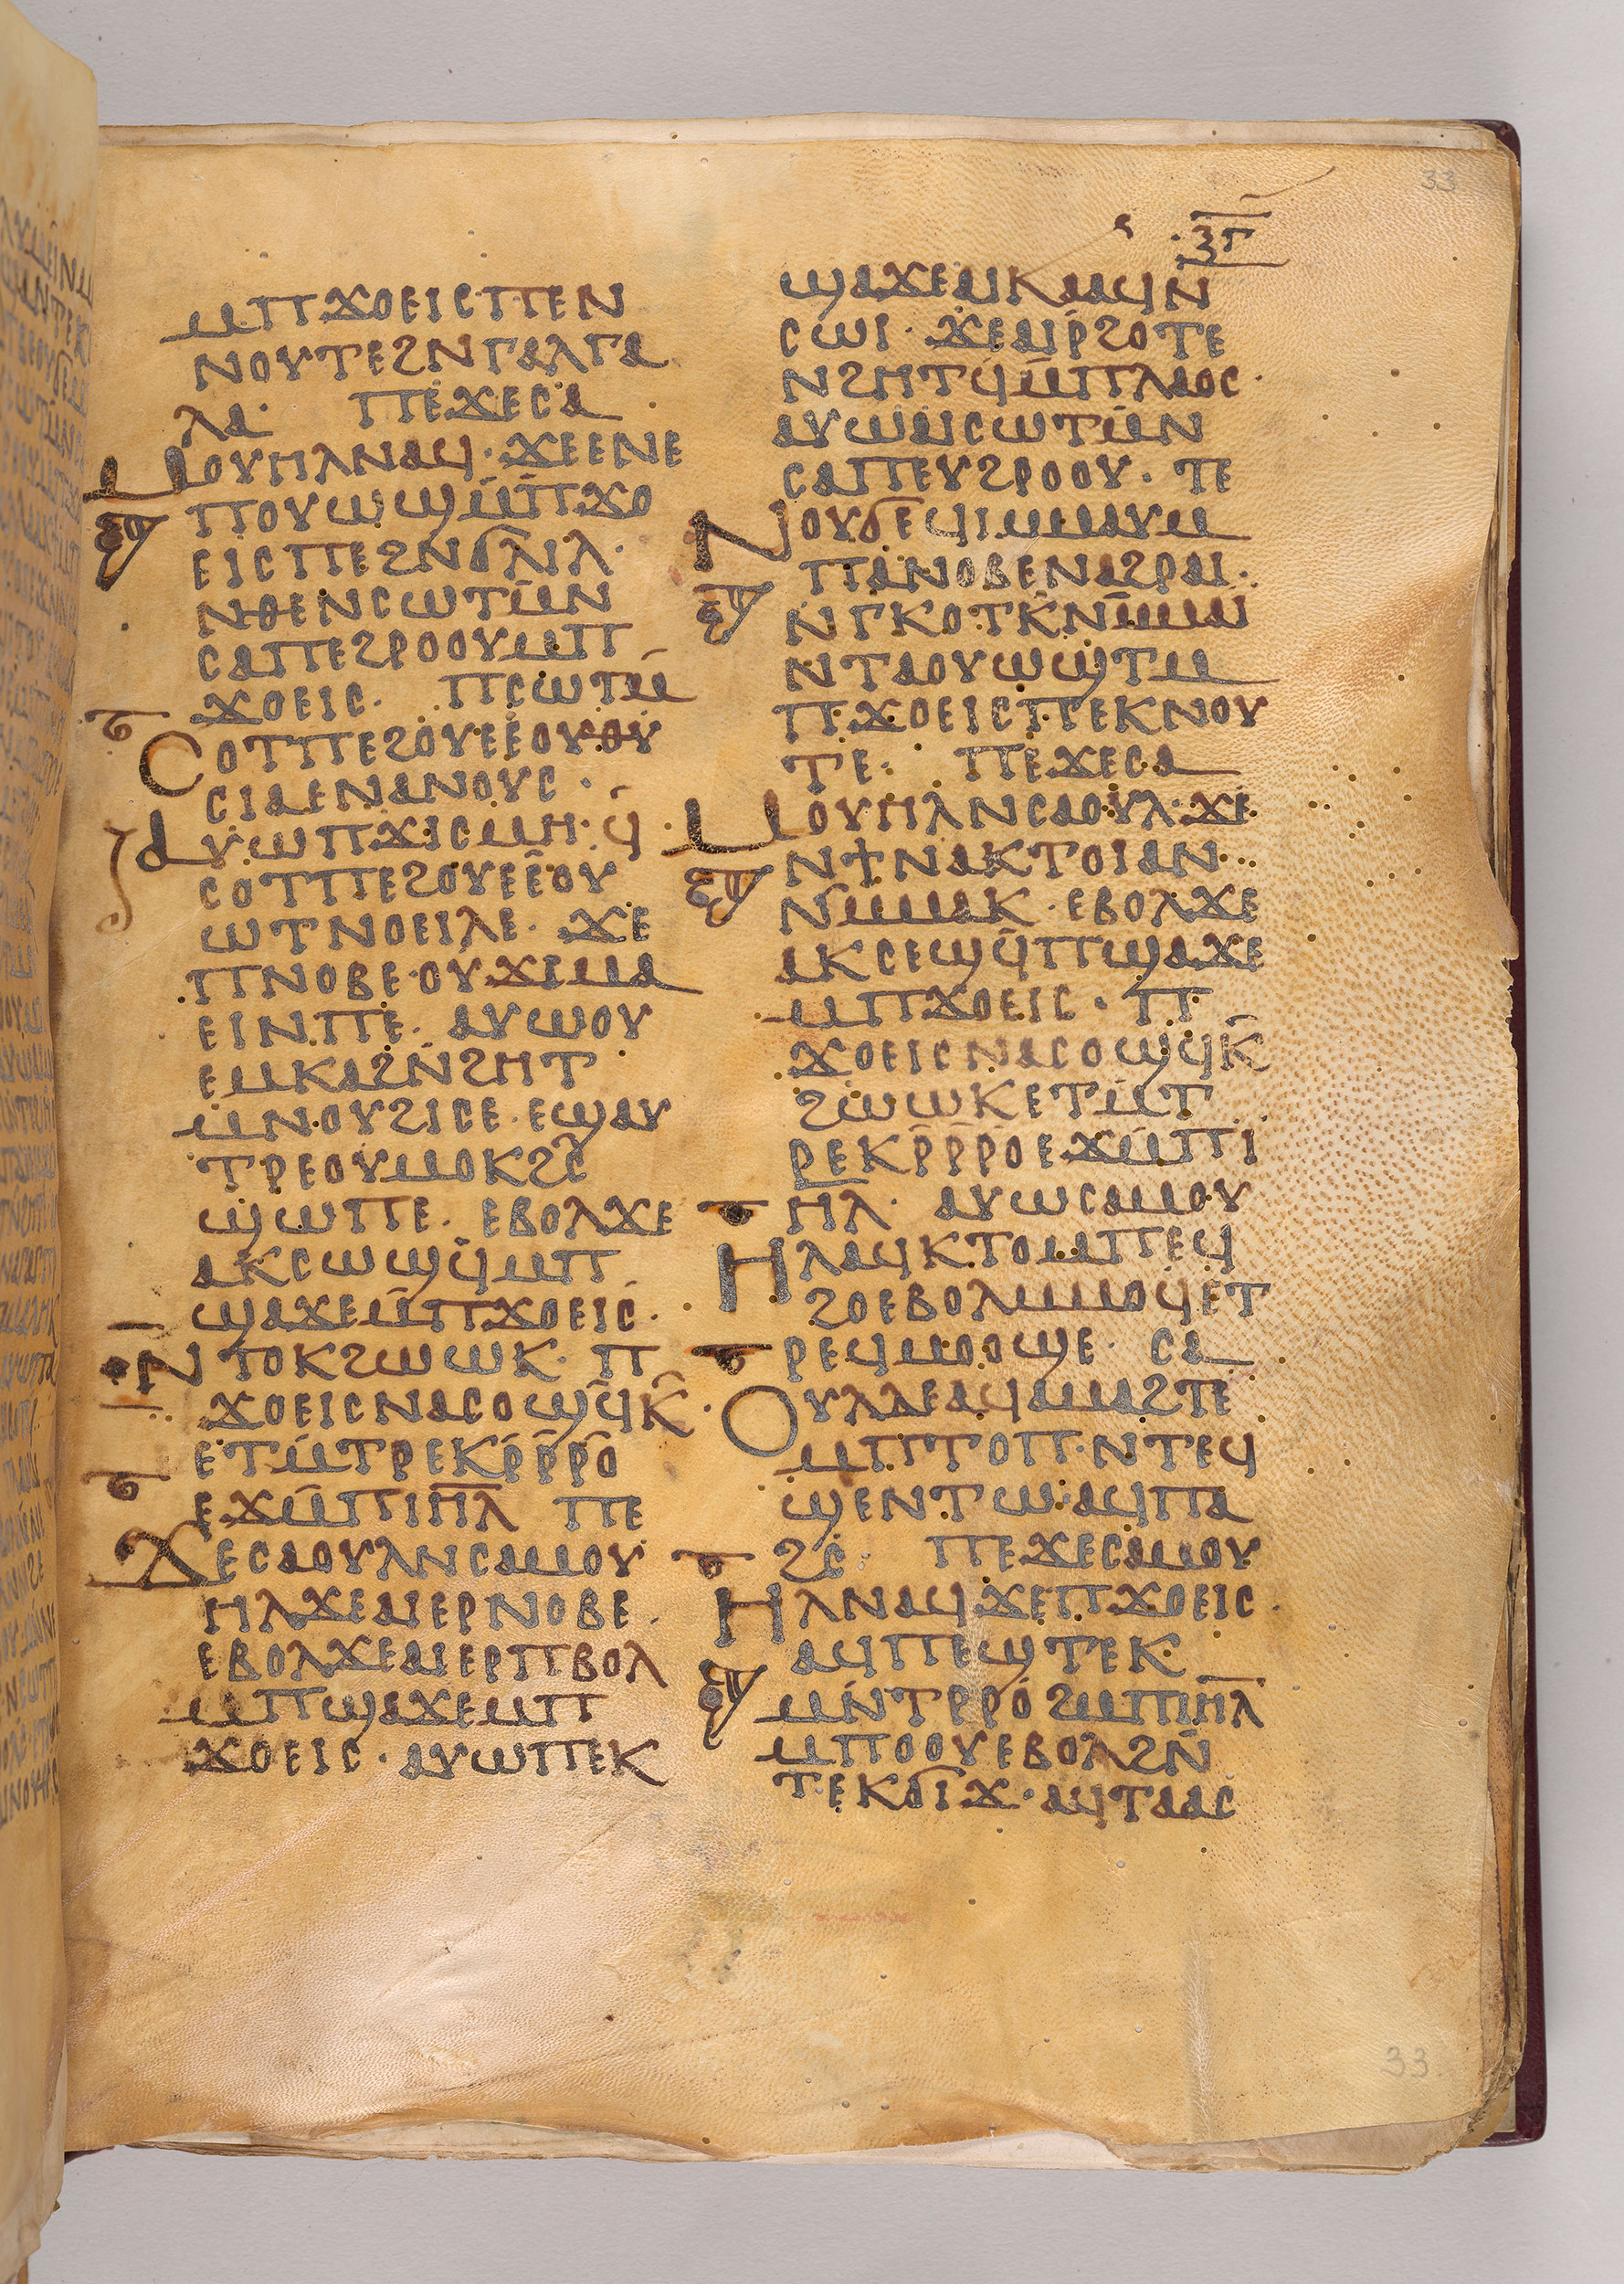 33
ⲝⲅ
ⲙⲡϫⲟⲉⲓⲥ·ⲡⲉⲛ
ⲛⲟⲩⲧⲉϩⲛⲅⲁⲗⲅⲁ
ⲗⲁ· ⲡⲉϫⲉⲥⲁ
ⲙⲟⲩⲏⲗⲛⲁϥ·ϫⲉⲉⲛⲉ
ⲡⲟⲩⲱϣⲙ̄ⲡ̄ϫⲟ
ⲉⲓⲥⲡⲉϩⲛϭⲗⲓⲗ·
ⲛⲑⲉⲛⲥⲱⲧⲙ̄ⲛ
ⲥⲁⲡⲉϩⲣⲟⲟⲩⲙⲡ
ϫⲟⲉⲓⲥ· ⲡⲥⲱⲧⲙ̄
ⲥⲟⲧⲡⲉϩⲟⲩⲉⲉⲟⲩⲑⲩ
ⲥⲓⲁⲉⲛⲁⲛⲟⲩⲥ·
ⲁⲩⲱⲡϫⲓⲥⲙⲏ·ϥ̄
ⲥⲟⲧⲡⲉϩⲟⲩⲉⲉ̄ⲟⲩ
ⲱⲧⲛⲟⲉⲓⲗⲉ· ϫⲉ
ⲡⲛⲟⲃⲉ·ⲟⲩϫⲓⲙⲁ
ⲉⲓⲛⲡⲉ· ⲁⲩⲱⲟⲩ
ⲉⲙⲕⲁϩⲛ̄ϩⲏⲧ
ⲙⲛⲟⲩϩⲓⲥⲉ·ⲉϣⲁⲩ
ⲧⲣⲉⲟⲩⲙⲟⲕϩⲥ̄
ϣⲱⲡⲉ· ⲉⲃⲟⲗϫⲉ
ⲁⲕⲥⲱϣϥ̄ⲙⲡ
ϣⲁϫⲉⲙ̄ⲡϫⲟⲉⲓⲥ·
ⲛⲧⲟⲕϩⲱⲱⲕ· ⲡ
ϫⲟⲉⲓⲥⲛⲁⲥⲟϣϥ̄ⲕ̄
ⲉⲧⲙ̄ⲧⲣⲉⲕⲣ̄ⲣ̄ⲣ̄ⲟ
ⲉϫⲙ̄ⲡⲓⲏ̄ⲗ̄ ⲡⲉ
ϫⲉⲥⲁⲟⲩⲗⲛⲥⲁⲙⲟⲩ
ⲏⲗϫⲉⲁⲓⲉⲣⲛⲟⲃⲉ·
ⲉⲃⲟⲗϫⲉⲁⲓⲉⲣⲡⲃⲟⲗ
ⲙⲡϣⲁϫⲉⲙⲡ
ϫⲟⲉⲓⲥ·ⲁⲩⲱⲡⲉⲕ
ϣⲁϫⲉⲁⲓⲕⲁⲁϥⲛ
ⲥⲱⲓ· ϫⲉⲁⲓⲣ̄ϩⲟⲧⲉ
ⲛϩⲏⲧϥ̄ⲙ̄ⲡⲗⲁⲟⲥ·
ⲁⲩⲱⲁⲓⲥⲱⲧⲙ̄ⲛ
ⲥⲁⲡⲉⲩϩⲣⲟⲟⲩ· ⲧⲉ
ⲛⲟⲩϭⲉϥⲓⲙⲙⲁⲩⲙ
ⲡⲁⲛⲟⲃⲉⲛⲁϩⲣⲁⲓ·
ⲛⲅⲕⲟⲧⲕ̄ⲛ̄ⲙ̄ⲙⲁⲓ
ⲛⲧⲁⲟⲩⲱϣⲧⲙ
ⲡϫⲟⲉⲓⲥⲡⲉⲕⲛⲟⲩ
ⲧⲉ· ⲡⲉϫⲉⲥⲁ
ⲙⲟⲩⲏⲗⲛⲥⲁⲟⲩⲗ·ϫⲉ
ⲛϯⲛⲁⲕⲧⲟⲓⲁⲛ·
ⲛⲙ̄ⲙⲁⲕ·ⲉⲃⲟⲗϫⲉ
ⲁⲕⲥⲉϣϥ̄ⲡϣⲁϫⲉ
ⲙⲡϫⲟⲉⲓⲥ· ⲡ
ϫⲟⲉⲓⲥⲛⲁⲥⲟϣϥⲕ̄
ϩⲱⲱⲕⲉⲧⲙ̄ⲧ
ⲣⲉⲕⲣ̄ⲣ̄ⲣ̄ⲟⲉϫⲙ̄ⲡⲓ
ⲏ̄ⲗ· ⲁⲩⲱⲥⲁⲙⲟⲩ
ⲏⲗⲁϥⲕⲧⲟⲙⲡⲉϥ
ϩⲟⲉⲃⲟⲗⲙ̄ⲙⲟϥⲉⲧ
ⲣⲉϥⲙⲟⲟϣⲉ· ⲥⲁ
ⲟⲩⲗⲇⲉⲁϥⲁⲙⲁϩⲧⲉ
ⲙⲡⲧⲟⲡ·ⲛⲧⲉϥ
ϣⲉⲛⲧⲱ·ⲁϥⲡⲁ
ϩⲥ̄· ⲡⲉϫⲉⲥⲁⲙⲟⲩ
ⲏⲗⲛⲁϥϫⲉⲡϫⲟⲉⲓⲥ·
ⲁϥⲡⲉϣⲧⲉⲕ
ⲙⲛ̄ⲧⲣⲣⲟ̄ϩⲙⲡⲓⲏ̄ⲗ̄
ⲙⲡⲟⲟⲩⲉⲃⲟⲗϩⲛ̄
ⲧⲉⲕϭⲓϫ·ⲁϥⲧⲁⲁⲥ
33